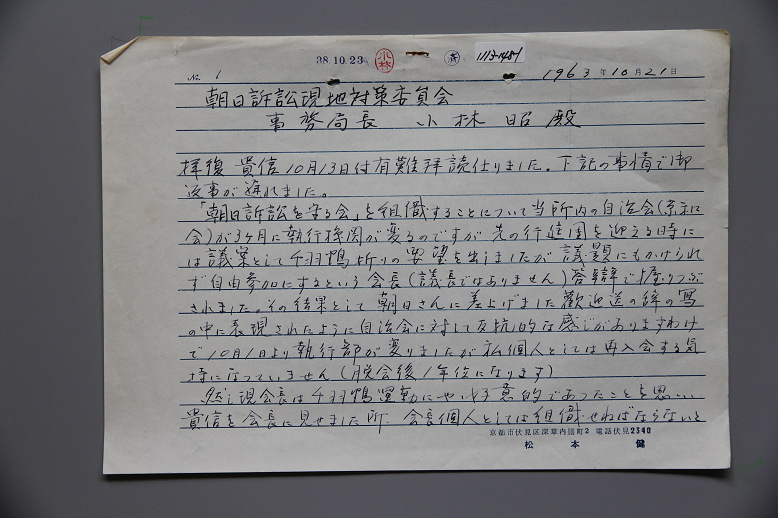 38.10.23 小林 済 1113-1484
No. 1 1963年10月21日
朝日訴訟現地対策委員会
事務局長 小林昭殿
拝復 貴信10月13日付有難拝読仕りました。下記の事情で御
返事が遅れました。
「朝日訴訟を守る会」を組織することについて当所内の自治会(京禾に
会)が3ヶ月に執行機関が変るのですが先の行進団を迎える時に
は議案として千羽鶴折りの要望を出しましたが議題にもかけられ
ず自由参加にするという会長(議長ではありません)答辯で握りつぶ
されました。その結果として朝日さんに差上げました歓迎送の辞の写
の中に表現されたように自治会に対して反抗的な感じがありますわけ
で10月1日より執行部が変りましたが私個人としては再入会する気
持になっていません(脱会後1年位になります)
然し現会長は千羽鶴運動にやゝ好意的であったことを思い
貴信を会長に見せました所、会長個人としては組織せねばならないと
京都市伏見区深草内膳町2 電話伏見2340
松本健